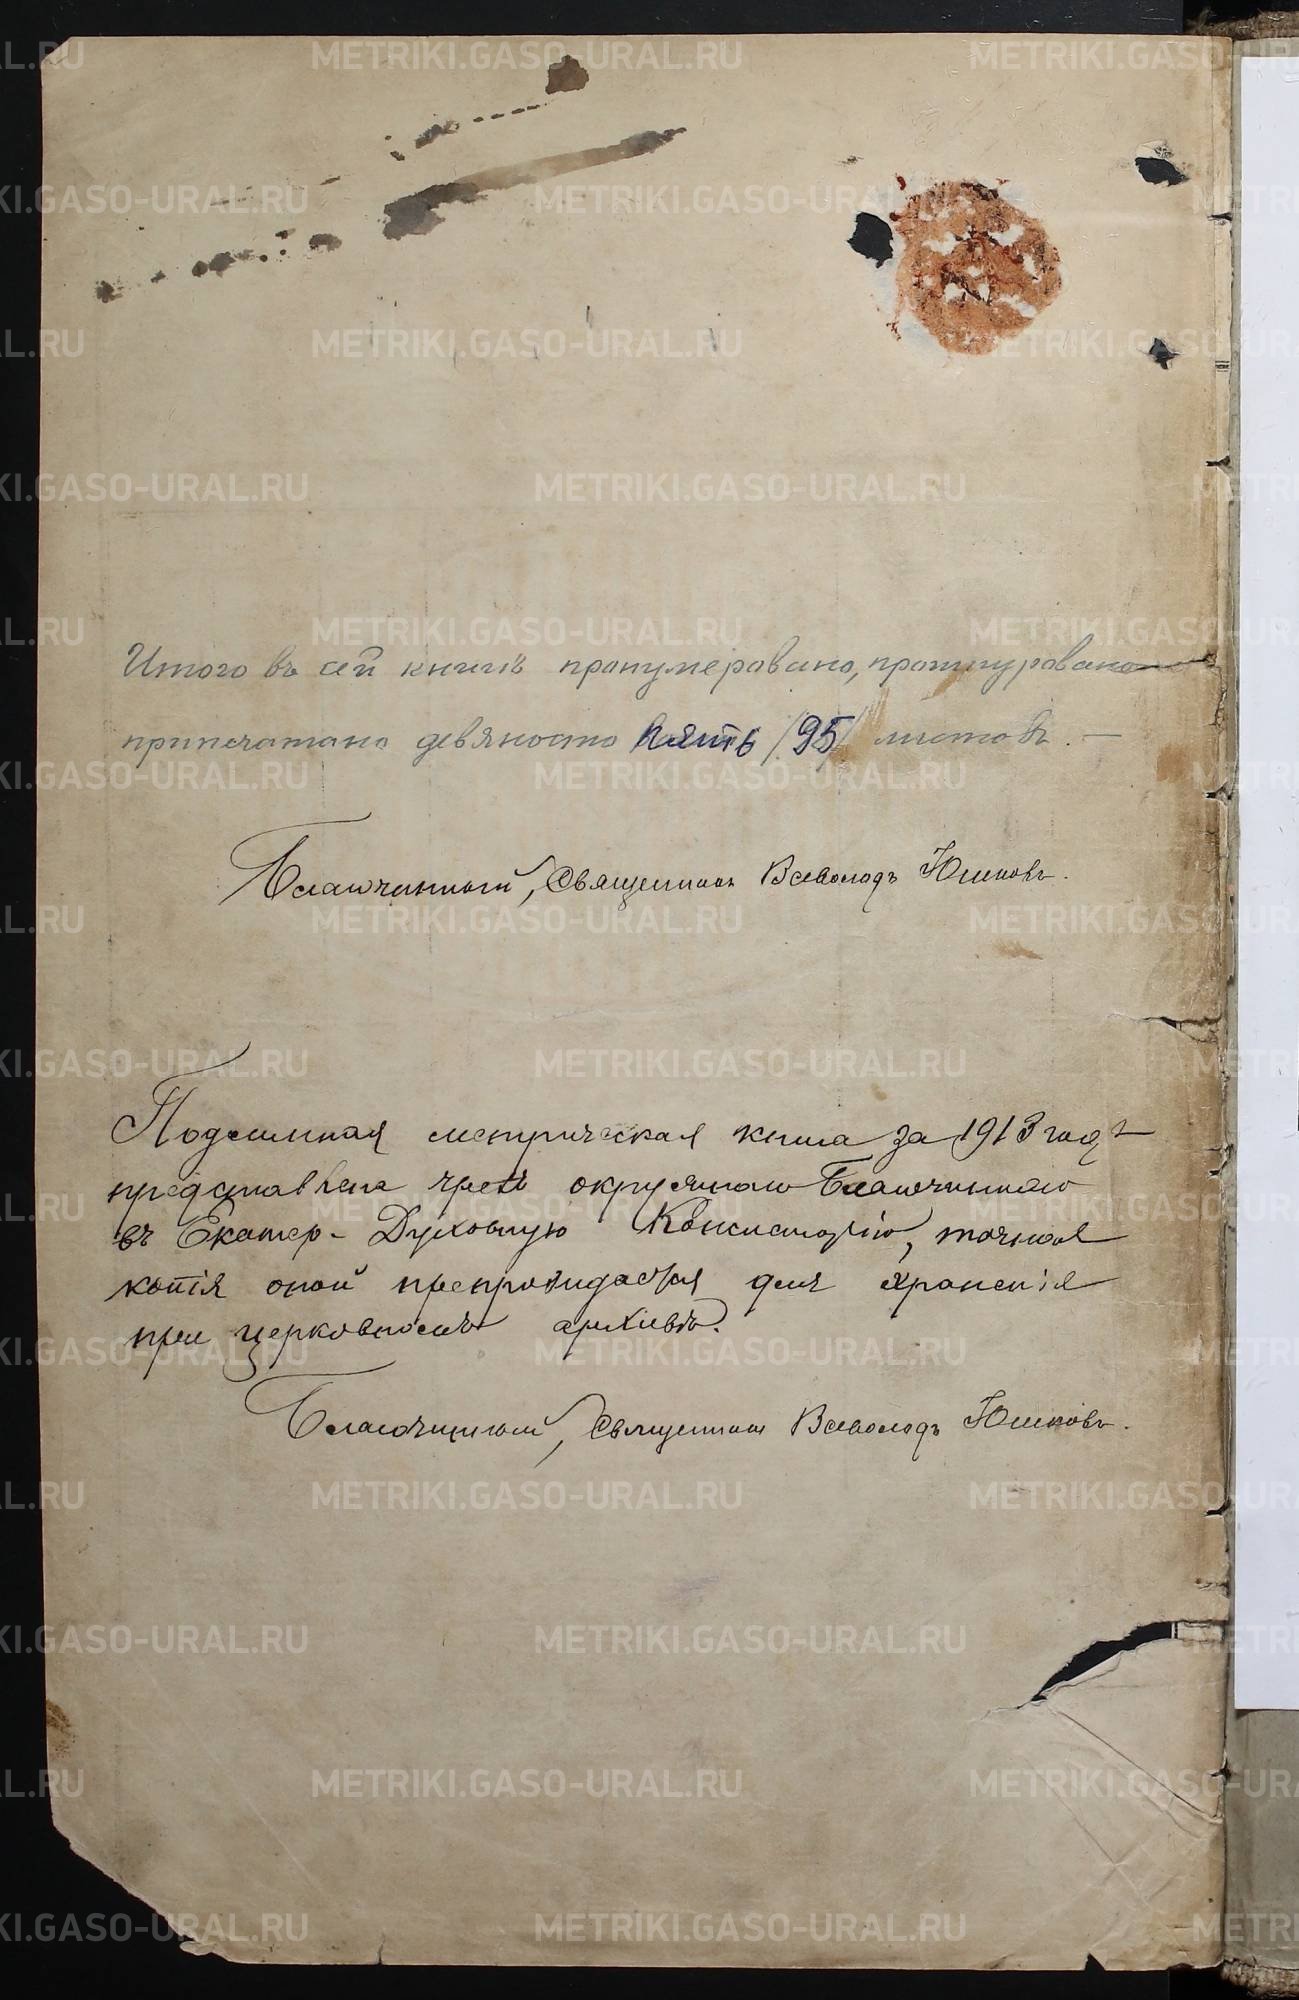 Итого въ сей книгѣ пронумеровано, прошнуровано
припечатано девяносто пять /95/ листовъ. —
Благочинный, Священник Всеволодъ Юшковъ.
Подлинная метрическая книга за 1913 годъ
представлена чрезъ окружнаго Благочиннаго
въ Екатер- Духовную Консисторію, точная
копія оной препровидается для храненія
при церковномъ архивѣ.
Благочинный, Священник Всеволодъ Юшковъ.
METRIKI.GASO-URAL.RU